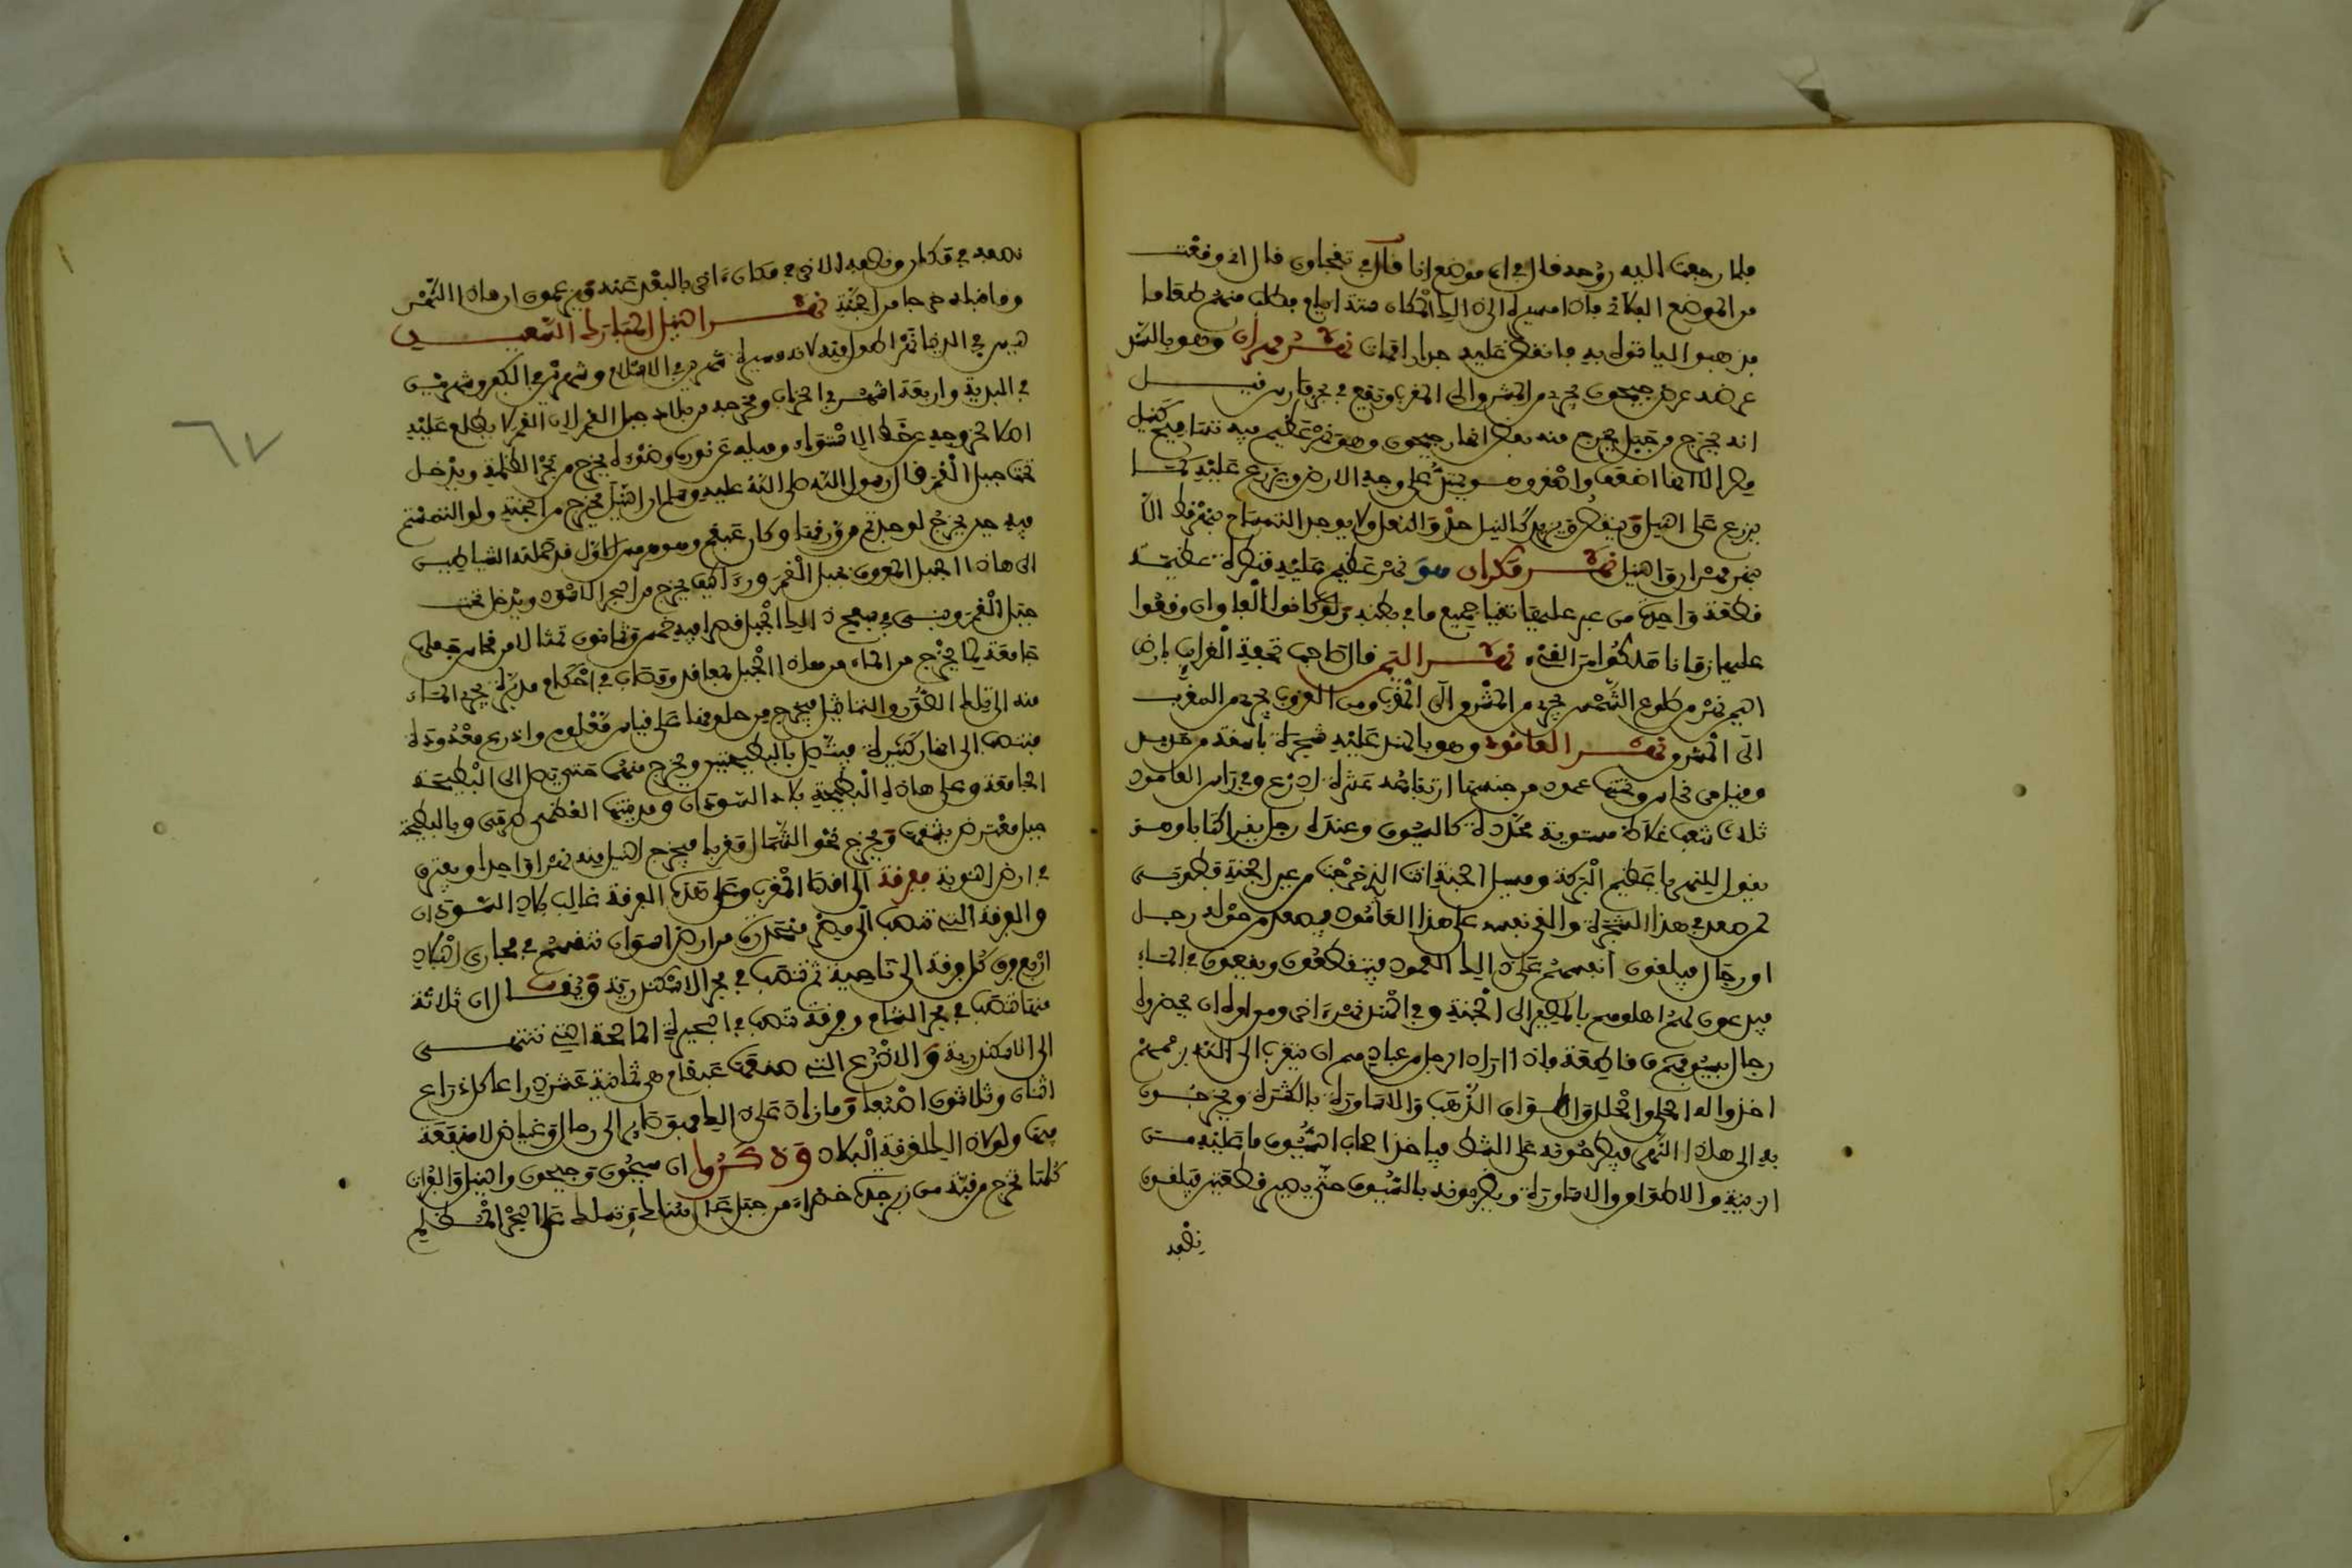 فلما رجعت اليه وحد قال في اي موضع انا قال في تفجاون قال اني وقعت
من الموضع الفلاني فاذا مسيرة الى ذلك المكان ستة ايام فطلب منهم طعاما
فذهبوا لياتوه به فانفض عليه جدار فمات نهر مهران وهو بالسند
عرضه عرض جيحون يجري من المشرق الى المغرب ويقع في بحر فارس قيل
انه يخرج من جبل يخرج منه بعض انهار جيحون وهو نهر عظيم فيه تماسيح كنيل
مصر الا انها اضعف واصغر وهو يمتد على وجه الارض ويزرع عليه كما
يزرع على النيل وينقص ويزيد كالنيل حذو النعل ولا يوجد التمساح بنهر قط الا
بنهر مهران والنيل نهر مكران هو نهر عظيم عليه قنطرة عظيمة
قطعة واحدة من عبر عليها تقيا جميع ما في بطنه ولو كانوا الفا وان وقفوا
عليها زمانا هلكوا من القيء نهر اليمن قال صاحب تحفة الغرايب بارض
اليمن نهر من طلوع الشمس يجري من المشرق الى المغرب ومن الغروب يجري من المغرب
الى المشرق نهر العامود وهو بالهند عليه شجرة باسقة من حديد
وقيل من نحاس وتحتها عمود من جنسها ارتفاعه عشرة اذرع وفي راس العامود
ثلاث شعب غلاظ مستوية محددة كالسيوف وعنده رجل يقرا كتابا وهو
يقول للنهر يا عظيم البركة وسبيل الجنة انت الذي خرجت من عين الجنة فطوبى
لمن صعد في هذا الشجرة والقى نفسه على هذا العامود فيصعد من حوله رجل
او رجال فيلقون انفسهم على ذلك العمود فيتقطعون ويقعون في الماء
فيدعون لهم اهلوهم بالمصير الى الجنة وفي الهند نهر اخر ومن اموره ان يحضره
رجال بسيوف قاطعة فاذا اراد الرجل من عبادهم ان يتقرب الى الله بزعمهم
اخذوا له الحلي والحلل واطواق الذهب والاساورة بالكثرة ويخرجون
به الى هذا النهر فيطرحونه على الشط فياخذ اصحاب السيوف ما عليه من
الزينة والاطواق والاساورة ويضربونه بالسيوف حتى يصير قطعتين فيلقون
نصفه
نصفه في مكان ونصفه الاخر في مكان اخر بالبعد عنه ويزعمون ان هاذا النهر
وما قبله خرجا من الجنة نهر النيل المبارك السعيد
ليس في الدنيا نهر اطول منه لانه مسيرة شهرين في الاسلام وشهرين في الكفر وشهرين
في البرية واربعة اشهر في الخراب ومخرجه من بلاد جبل القمر لان القمر لا يطلع عليه
اصلا لخروجه عن خط الاستواء وميله عن نوره وضوءه يخرج من بحر الظلمة ويدخل
تحت جبل القمر قال رسول الله صلى الله عليه وسلم ان النيل يخرج من الجنة ولو التمستم
فيه حين يخرج لوجدتم من ورقها وكان عبقم وهو هرمس الاول قد حملته الشياطين
الى هاذا الجبل المعروف بجبل القمر وراى كيف يخرج من البحر الاسود ويدخل تحت
جبل القمر وبنى في سفح ذلك الجبل قصرا فيه خمس وثمانون تمثالا من نحاس جعلها
جامعة لما يخرج من الماء من هاذا الجبل بمعاقد ومصاب في احكام مدبرة يجري الماء
منه الى تلك الصور والتماثيل فيخرج من حلوقها على قياس معلوم واذرع معدودة
فتنصب الى انهار كثيرة فيتصل بالبطيحتين ويخرج منهما حتى يصل الى البطيحة
الجامعة وعلى هاذه البطيحة بلاد السودان ومدينتها العظمى طرمى وبالبطيحة
جبل معترض يشقها ويخرج نحو الشمال مغربا فيخرج النيل منه نهرا واحدا ويفترق
في ارض النوبة فرقة الى اقصا المغرب وعلى هذه الفرقة غالب بلاد السودان
والفرقة التي تنصب الى مصر منحدرة من ارض اسوان تنقسم في مجاري البلاد
اربع فرق كل فرقة الى ناحية ثم تنصب في بحر الاسكندرية ويقال ان ثلاثة
منها تنصب في بحر الشام وفرقة تنصب في البحيرة المالحة التي تنتهي
الى الاسكندرية والاذرع التي صنعها عبقام هي ثمانية عشر ذراعا كل ذراع
اثنان وثلاثون اصبعا وما زاد على ذلك فهو صاير الى رمال وغياض لا منفعة
فيها ولولا ذلك لغرقت البلاد وذكروا ان سيحون وجيحون والنيل والفرات
كلها تخرج من قبة من زبرجدة خضراء من جبل عال هناك وتسلك على البحر المظلم
٦٧